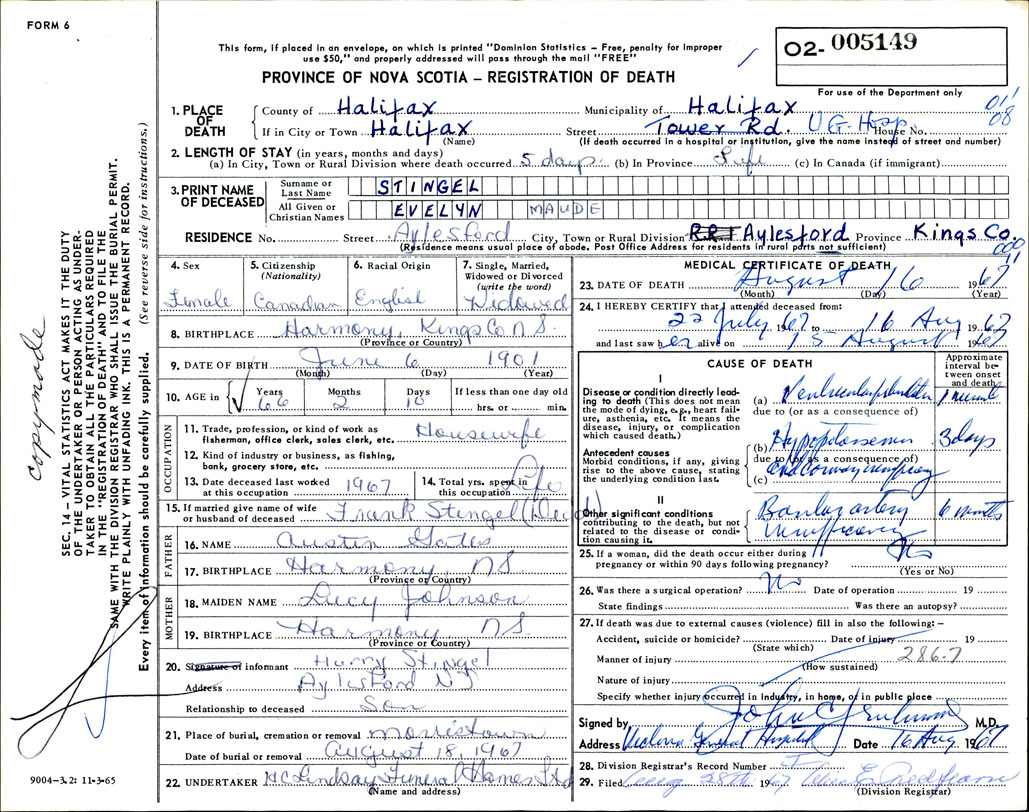 FORM 6
This form, if placed in an envelope, on which is printed "Dominion Statistics – Free, penalty for improper
use $50," and properly addressed will pass through the mail "FREE"
PROVINCE OF NOVA SCOTIA – REGISTRATION OF DEATH
02- 005149
For use of the Department only
011
08
1. PLACE OF DEATH
County of Halifax Municipality of Halifax
If in City or Town Halifax Street Tower Rd. V G. Hosp House No.
(Name) (If death occurred in a hospital or institution, give the name instead of street and number)
2. LENGTH OF STAY (in years, months and days)
(a) In City, Town or Rural Division where death occurred 5 days. (b) In Province Life (c) In Canada (if immigrant)
3. PRINT NAME OF DECEASED
Surname or Last Name STINGEL
All Given or Christian Names EVELYN MAUDE
RESIDENCE No. Street Aylesford City, Town or Rural Division RR1 Aylesford Province Kings Co.
(Residence means usual place of abode. Post Office Address for residents in rural parts not sufficient)
4. Sex Female
5. Citizenship (Nationality) Canadian
6. Racial Origin English
7. Single, Married, Widowed or Divorced (write the word) Widowed
8. BIRTHPLACE Harmony, Kings Co N.S.
(Province or Country)
9. DATE OF BIRTH June 6 1901
(Month) (Day) (Year)
10. AGE in Years 66 Months 2 Days 10 If less than one day
hrs. or min.
OCCUPATION
11. Trade, profession, or kind of work as
fisherman, office clerk, sales clerk, etc. Housewife
12. Kind of industry or business, as fishing,
bank, grocery store, etc.
13. Date deceased last worked
at this occupation 1967
14. Total yrs. spent in
this occupation Life
15. If married give name of wife
or husband of deceased Frank Stingel
FATHER
16. NAME Austin Gates
17. BIRTHPLACE Harmony NS
(Province or Country)
MOTHER
18. MAIDEN NAME Lucy Johnson
19. BIRTHPLACE Harmony N.S.
(Province or Country)
20. Signature of informant Harry Stingel
Address Aylesford NS
Relationship to deceased Son
21. Place of burial, cremation or removal Morristown
Date of burial or removal August 18, 1967
22. UNDERTAKER H C Lindsay Funeral Homes Ltd
(Name and address)
MEDICAL CERTIFICATE OF DEATH
23. DATE OF DEATH August 16 1967
(Month) (Day) (Year)
24. I HEREBY CERTIFY that I attended deceased from:
22 July 1967 to 16 Aug 1967
and last saw her alive on 15 August 1967
CAUSE OF DEATH
Approximate interval between onset and death
I
Disease or condition directly leading to death (This does not mean the mode of dying, e.g., heart failure, asthenia, etc. It means the disease, injury, or complication which caused death.)
(a) Ventricular fibrillation 1 minute
due to (or as a consequence of)
Antecedent causes
Morbid conditions, if any, giving rise to the above cause, stating the underlying condition last.
(b) 3 days
due to (or as a consequence of)
(c) and coronary insufficiency
II
Other significant conditions
contributing to the death, but not related to the disease or condition causing it.
Basilar artery
insufficiency 6 months
25. If a woman, did the death occur either during
pregnancy or within 90 days following pregnancy? No
(Yes or No)
26. Was there a surgical operation? No Date of operation 19
State findings Was there an autopsy?
27. If death was due to external causes (violence) fill in also the following:–
Accident, suicide or homicide? Date of injury 19
(State which)
Manner of injury 286.7
(How sustained)
Nature of injury
Specify whether injury occurred in industry, in home, or in public place
Signed by M.D.
Address Victoria General Hospital Date 16 Aug 1967
28. Division Registrar's Record Number
29. Filed Aug 28th 1967
(Division Registrar)
9004-3.2: 11-3-65
copy made
SEC. 14 – VITAL STATISTICS ACT MAKES IT THE DUTY
OF THE UNDERTAKER OR PERSON ACTING AS UNDER-
TAKER TO OBTAIN ALL THE PARTICULARS REQUIRED
IN THE "REGISTRATION OF DEATH" AND TO FILE THE
SAME WITH THE DIVISION REGISTRAR WHO SHALL ISSUE THE BURIAL PERMIT.
WRITE PLAINLY WITH UNFADING INK. THIS IS A PERMANENT RECORD.
Every item of information should be carefully supplied. (See reverse side for instructions.)